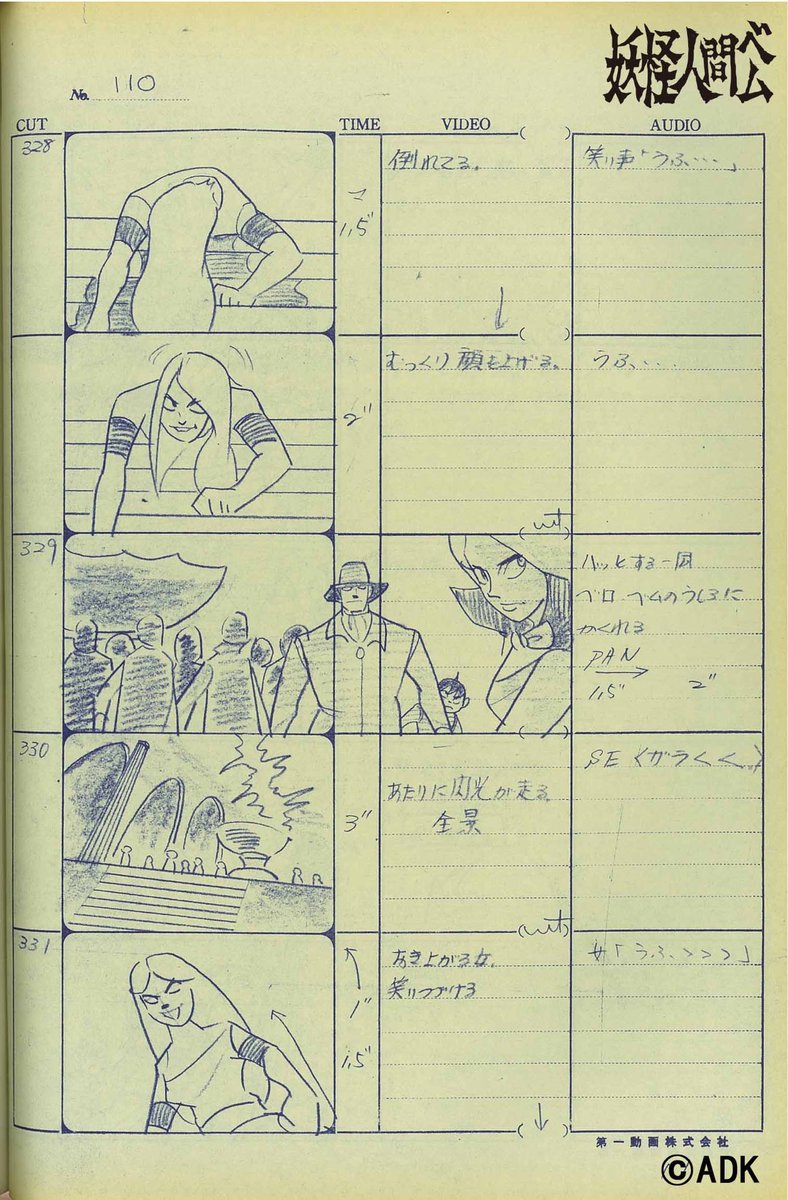 妖怪人間ベム
No. 110
CUT TIME VIDEO ( ) AUDIO
328
1,5"
倒れてる。
笑い声「うふ・・・」
( )
2"
むっくり顔を上げる。
うふ、・・・
(cut)
329
ハッとする一同
ベロ ベムのうしろに
かくれる
PAN
1,5" 2"
( )
330
3"
あたりに閃光が走る。
全景
SE くガラくく
(cut)
331
1"
1,5"
おき上がる女。
笑いつづける
女「うふ、>>>」
( )
第一動画株式会社
©ADK